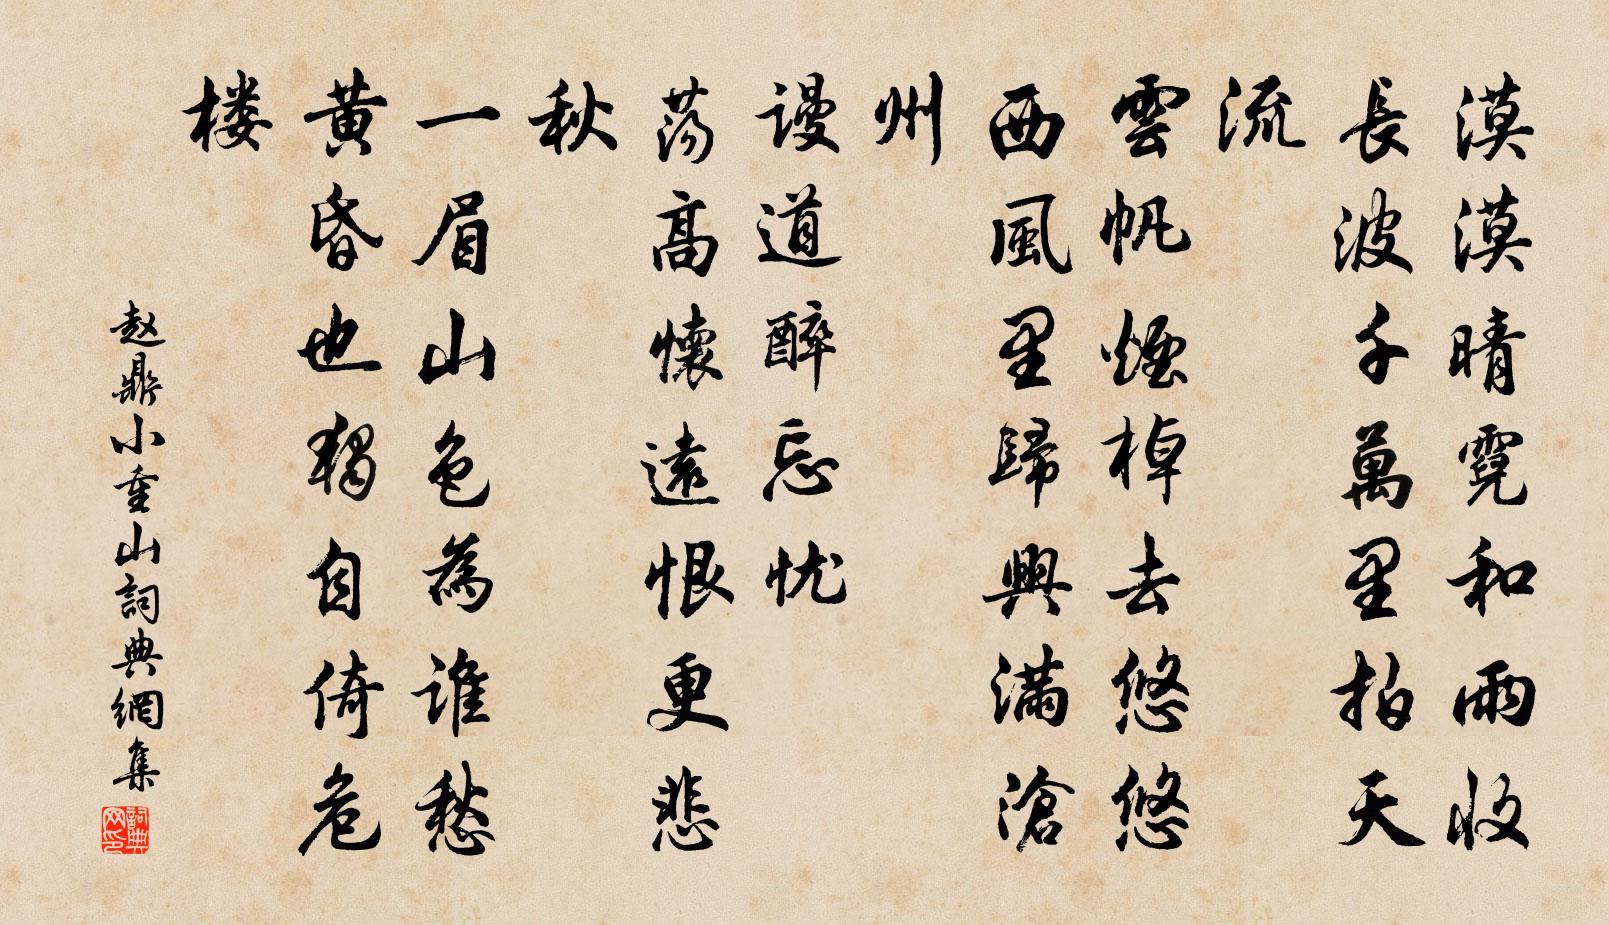 漠漠晴霓和雨收
長波千萬里拍天
流
雲帆煙棹去悠悠
西風里歸興滿滄
州
谩道醉忘忧
蕩高懷遠恨更悲
秋
一眉山色為誰愁
黃昏也獨自倚危
楼
赵鼎小重山詞典網集
詞典网印